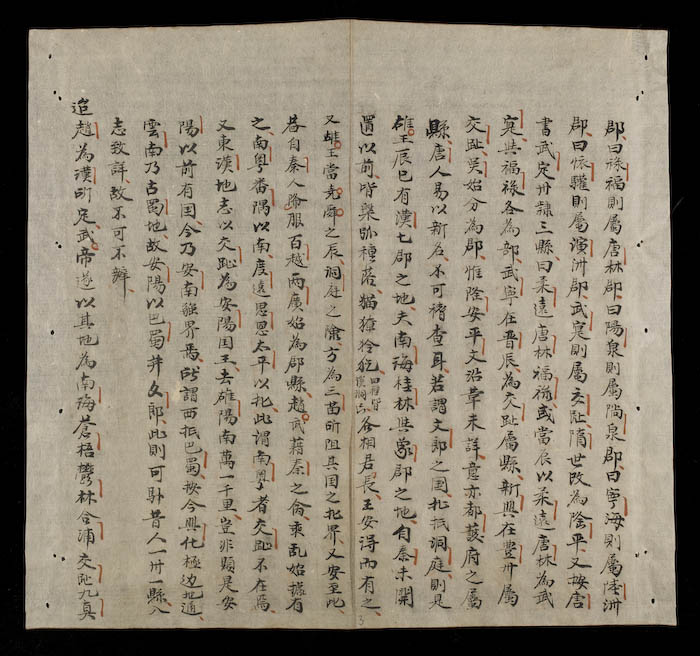 郡曰福祿則屬唐林郡曰陽泉則屬湯泉郡曰寧海則屬陸洲
郡曰怀驩則屬演洲郡武定則屬交趾隋世改為隆平又按唐
書武定卅隸三縣曰柔遠唐林福祿或當辰以柔遠唐林為武
定共福祿各為部武寧在晋辰為交趾屬縣新興在豐卅屬
交趾吳始分為郡惟陸安平文沿革未詳意亦都護府之屬
縣唐人易以新名不可稽查耳若謂文郎之国北抵洞庭則是
雄王辰已有漢七郡之地夫南海桂林與象郡之地自秦未開
置以前皆槃瓠種落猫獐狑犵各相君長王安得而有之
又雄王當堯舜之辰洞庭之陰方為三苗所阻其国之北界又安至此
昔自秦人降服百越兩廣始為郡縣趙武藉秦之俻乘乱始據有
之南粤番隅以南度遠思恩太平以北此謂南粤者交趾不在焉
又東漢地志以交趾為安陽国王去雄陽南萬一千里豈非顕是安
陽以前有国今乃安南疆界焉所謂西抵巴蜀按今興化極边地通
雲南乃古蜀地故安陽以巴蜀并文郎此則可卦昔人一卅一縣入
志致詳故不可不辦
迨趙為漢所定武帝遂以其地為南海蒼梧鬱林合浦交趾九真